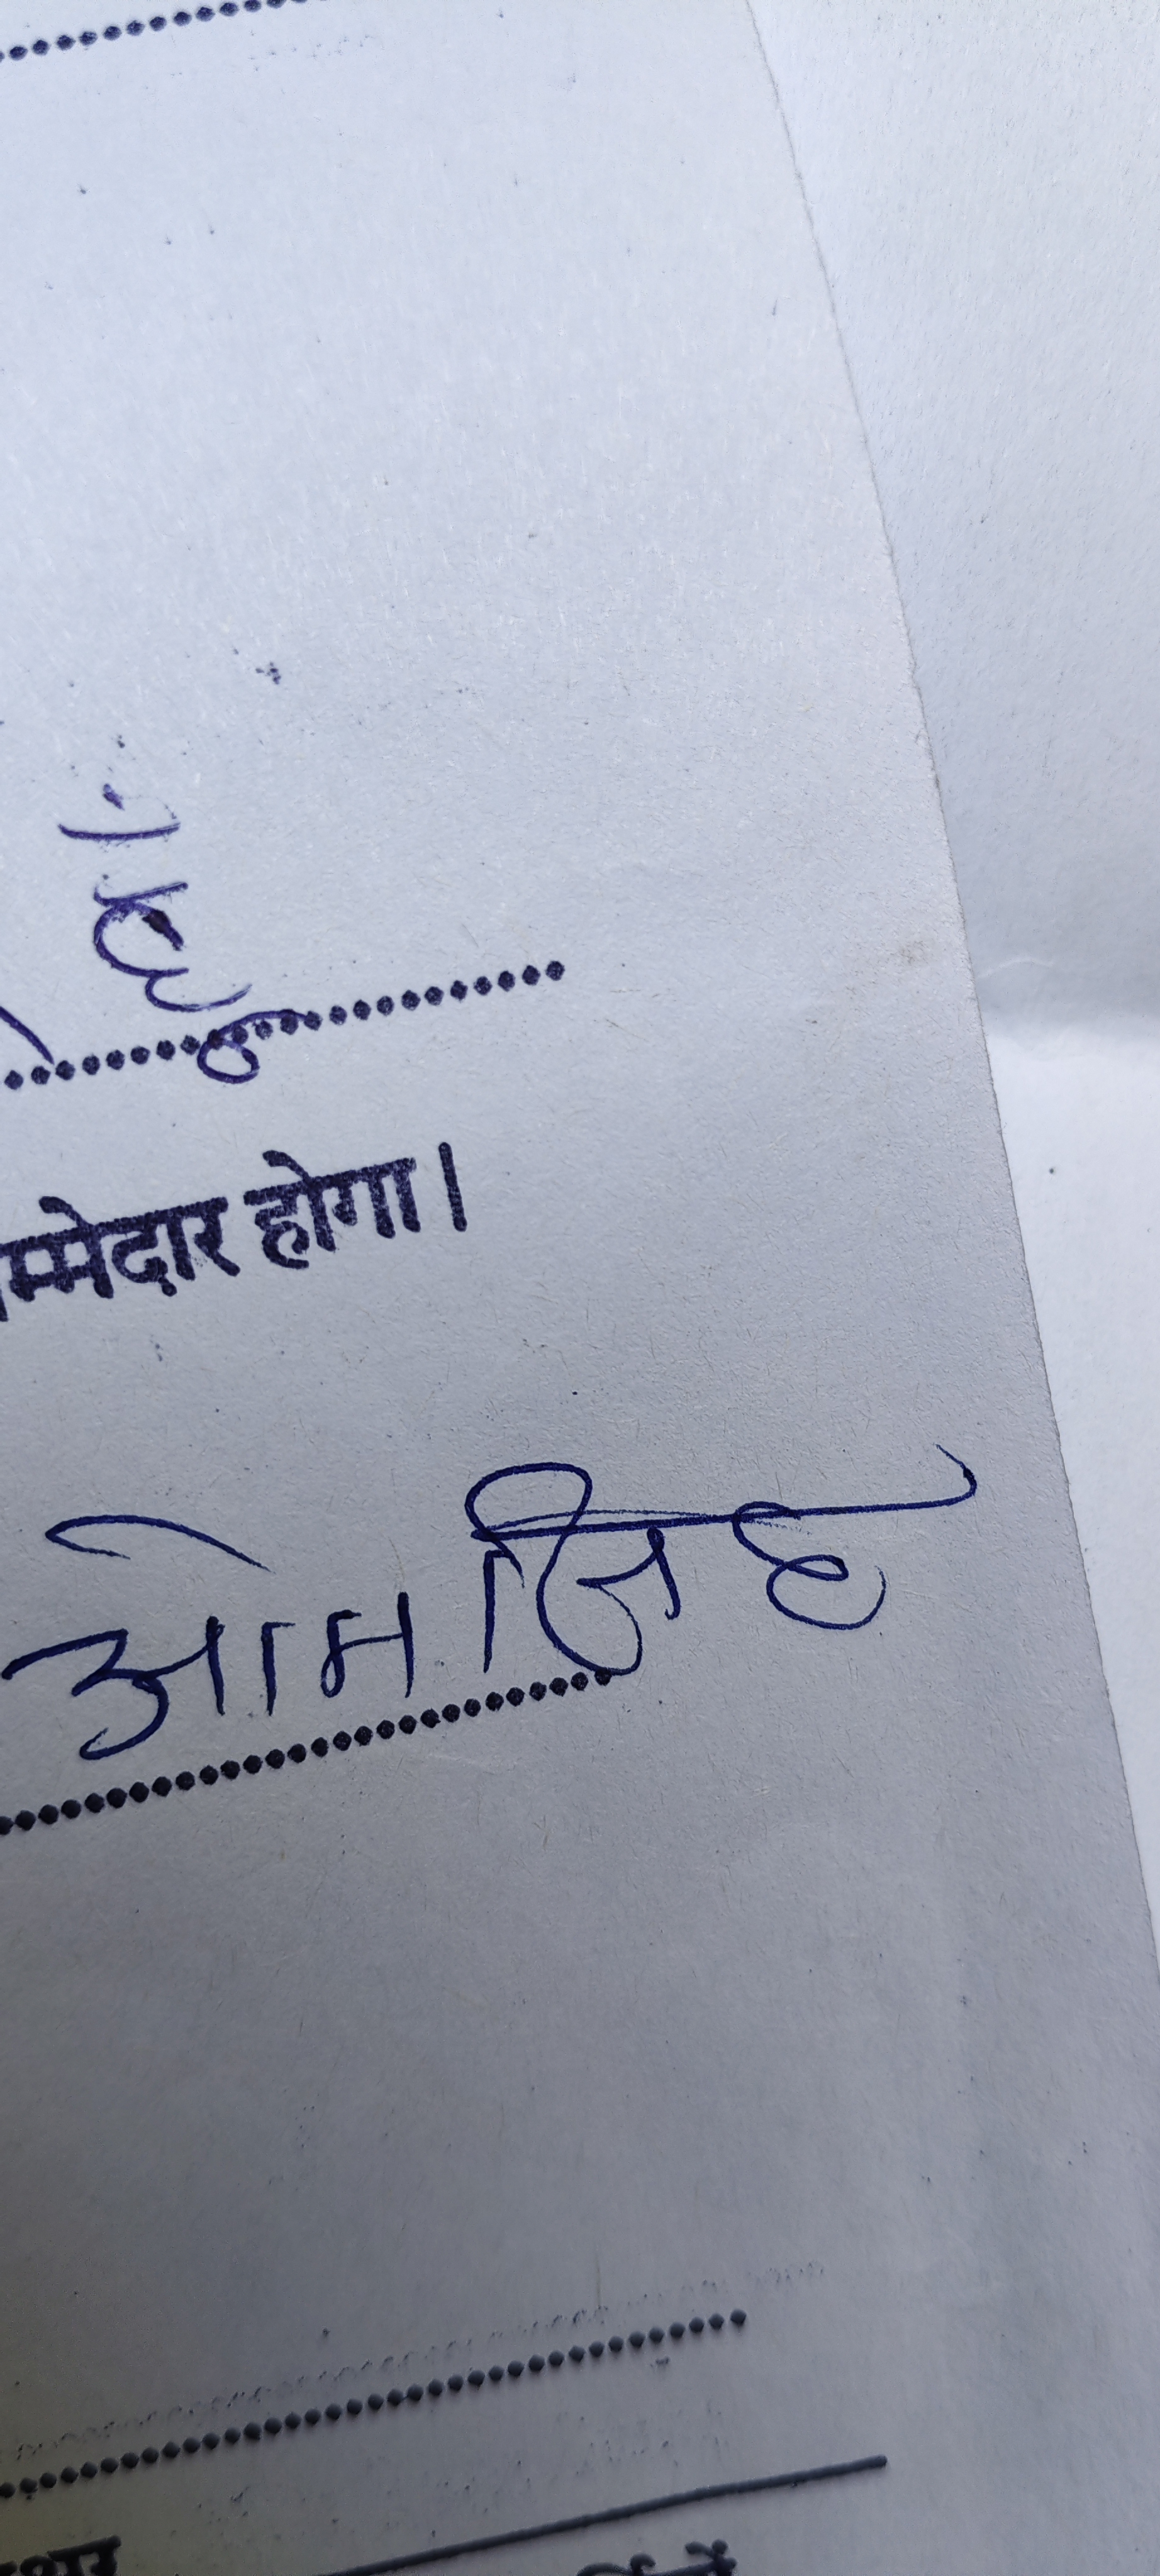 हूं
म्मेदार होगा।
ओम सिंह